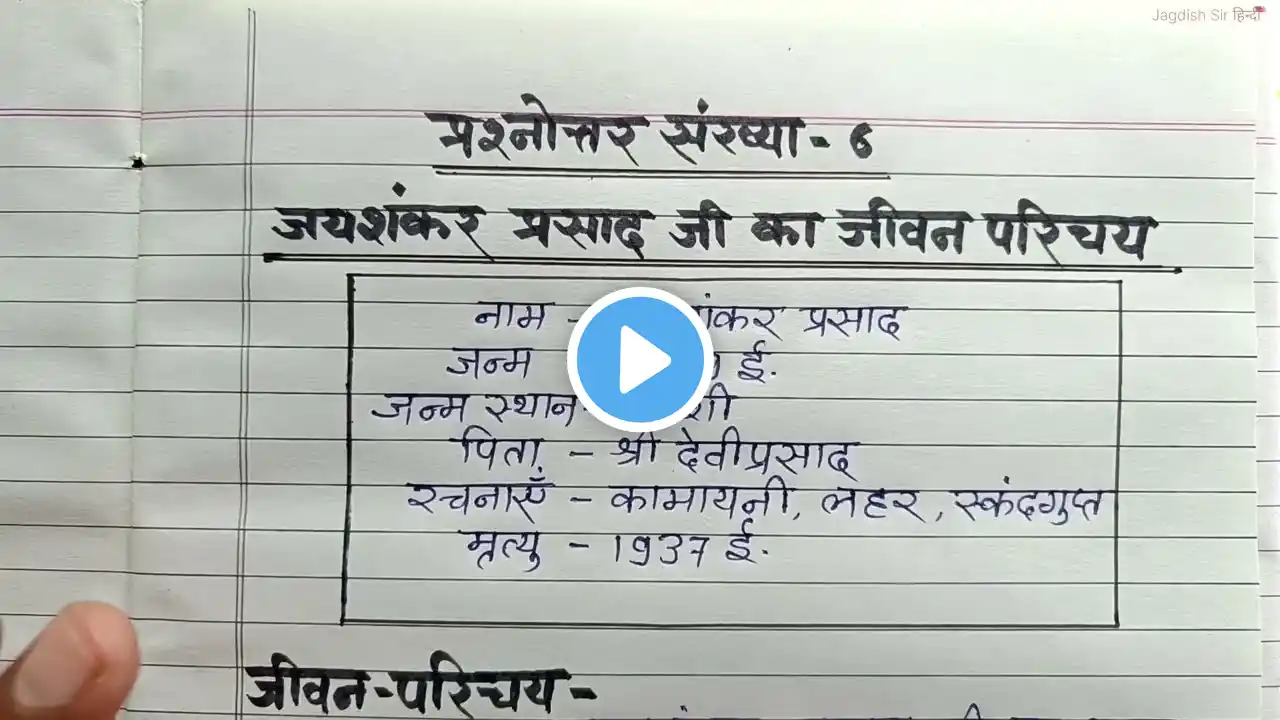 Jagdish Sir हिन्दी
प्रश्नोत्तर संख्या - 6
जयशंकर प्रसाद जी का जीवन परिचय
नाम - शंकर प्रसाद
जन्म ई.
जन्म स्थान-
पिता - श्री देवीप्रसाद
रचनाएँ - कामायनी, लहर, स्कंदगुप्त
मृत्यु - 1937 ई.
जीवन-परिचय -